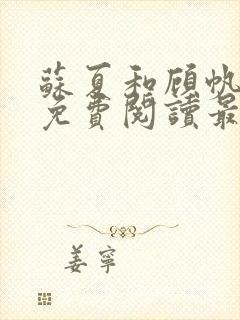 蘇夏和顾帆
免費閱讀最
姜寧